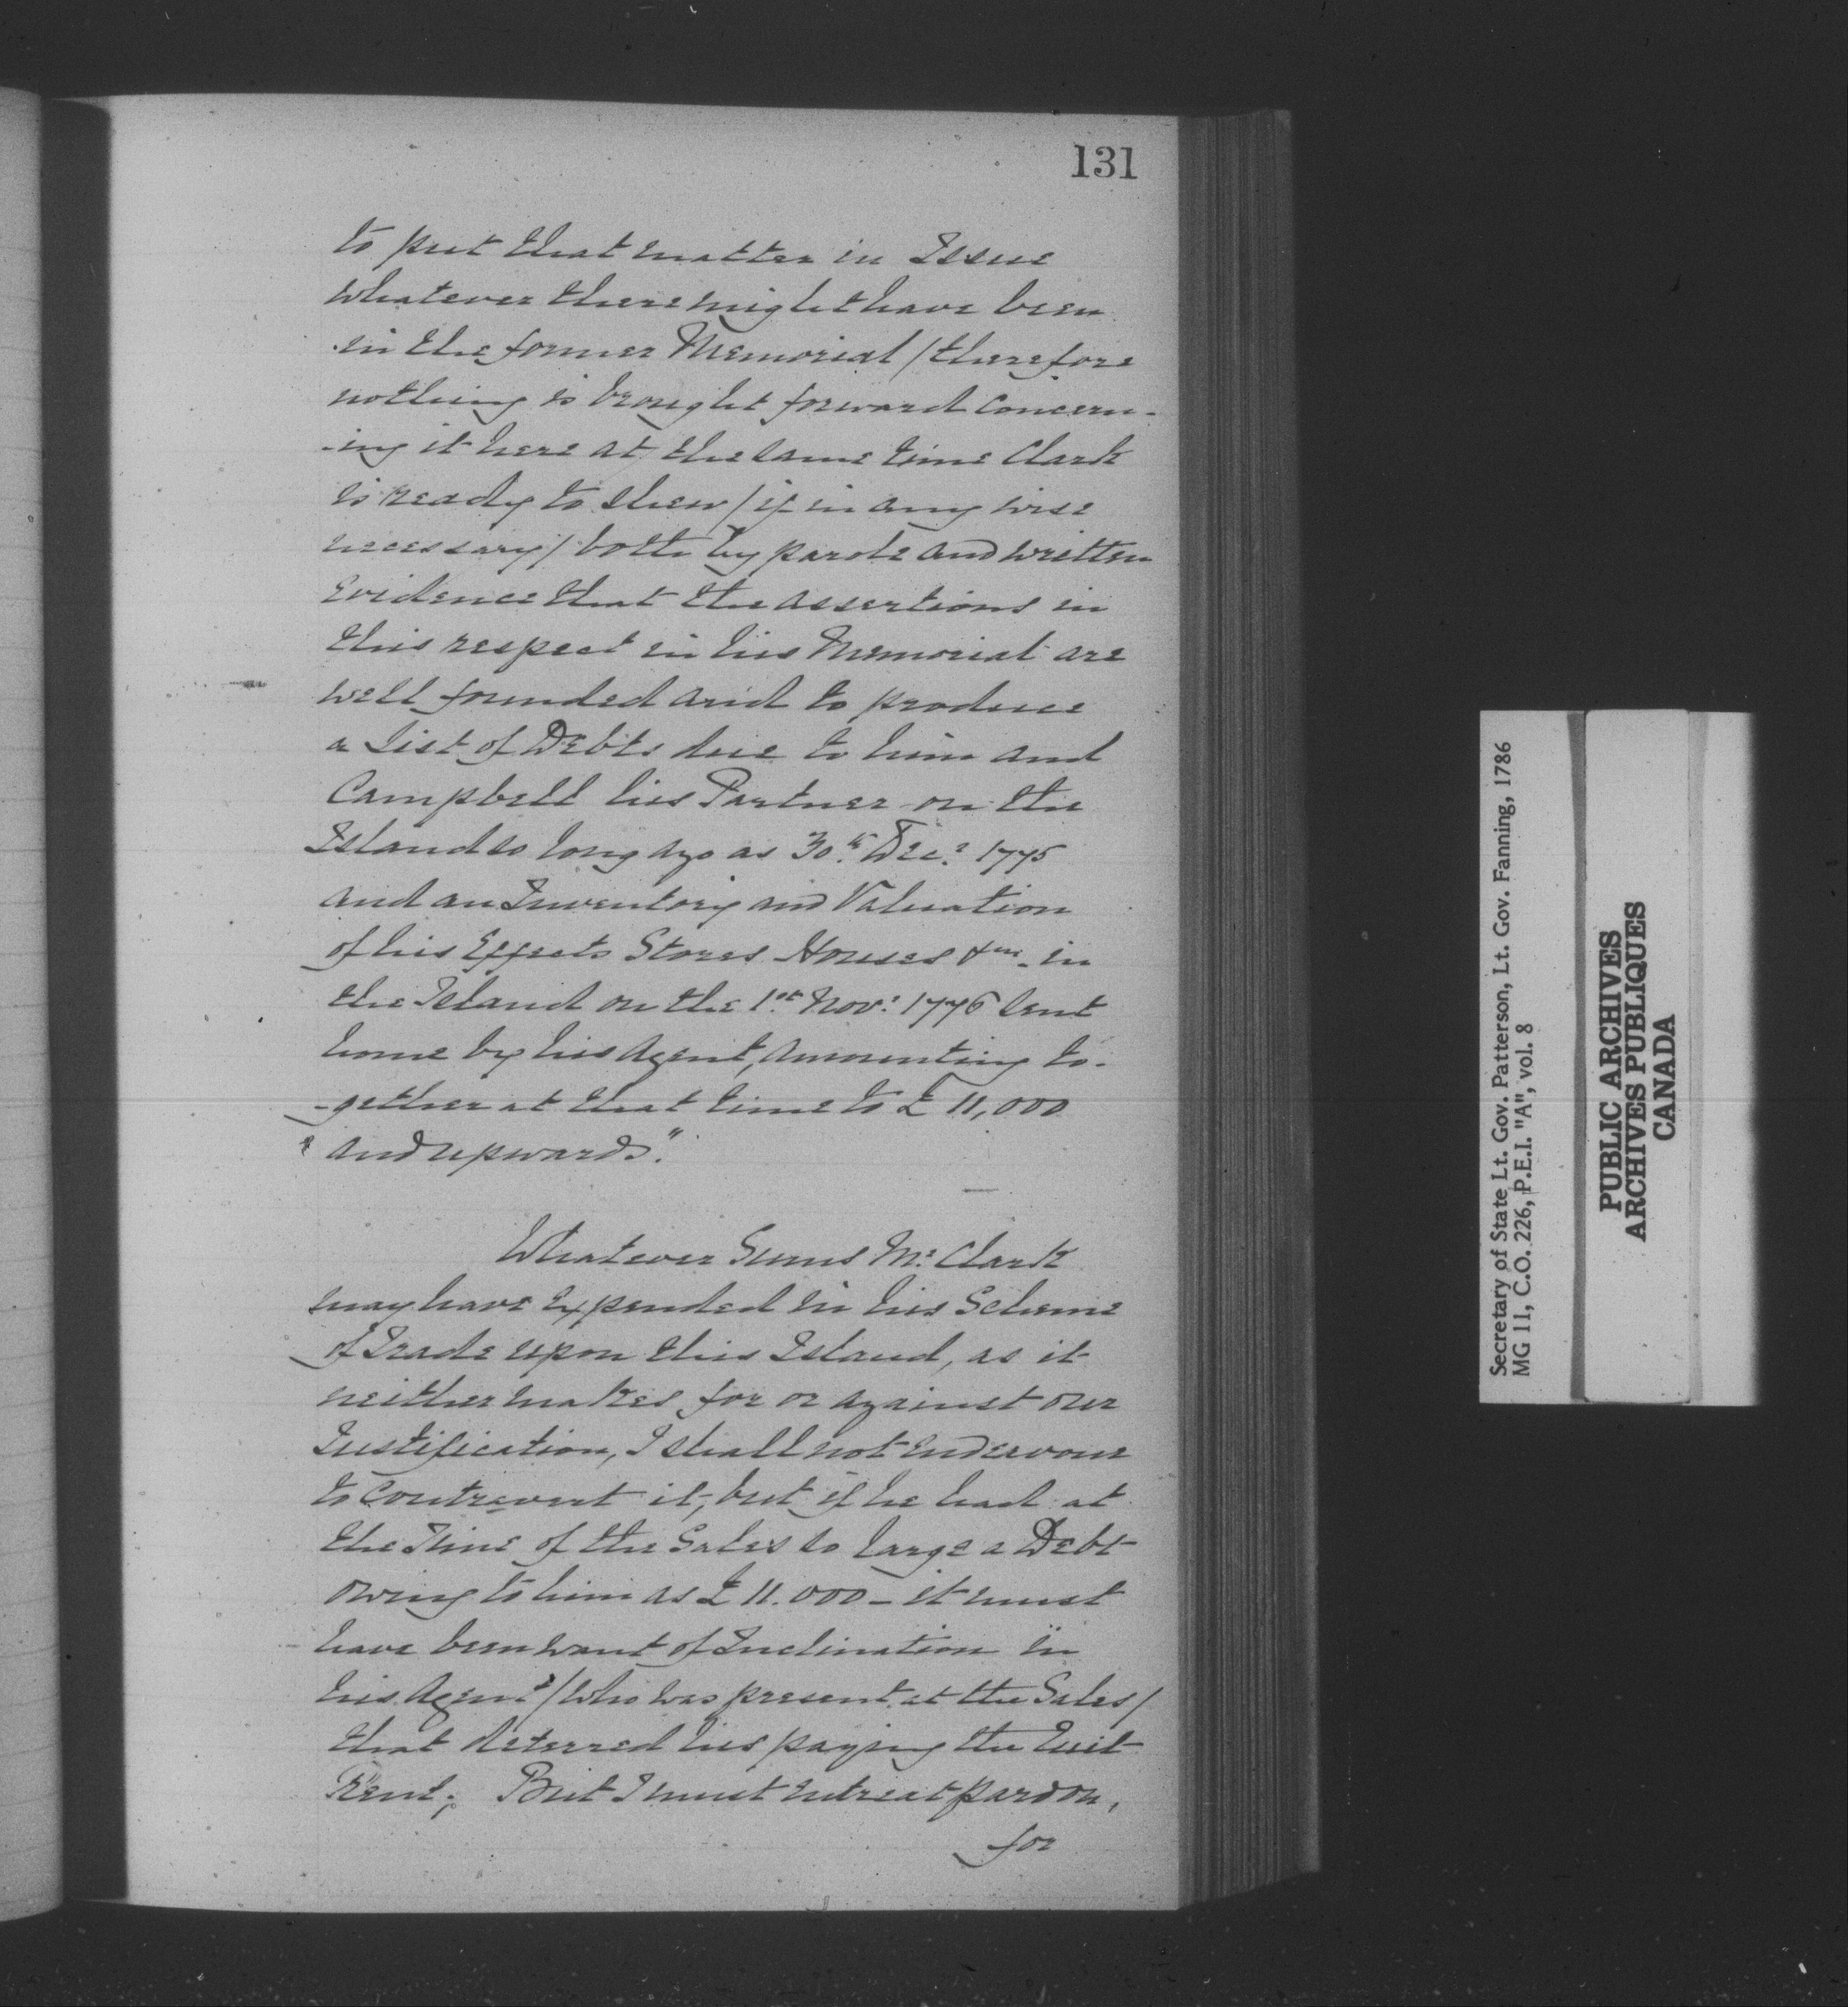 131
to put that matter in Issue
whatever there might have been
in the former Memorial / therefore
nothing is brought forward Concern-
-ing it here at the same time Clark
is ready to shew / if in any wise
necessary / both by parole and written
Evidence that the assertions in
this respect in his Memorial are
well founded and to produce
a List of Debts due to him and
Campbell his Partner on the
Island so long ago as 30th Decr 1775
and an Inventory and Valuation
of his Effects Stores Houses &ca in
the Island on the 1st Novr 1776 sent
home by his Agent, amounting to-
-gether at that time to £ 11,000
" and upwards."
Whatever Sums Mr Clark
may have Expended in his Scheme
of Trade upon this Island, as it
neither makes for or against our
Justification, I shall not Endeavour
to Contravert it, but if he had at
the Time of the Sales so large a Debt
owing to him as £ 11.000 - it must
have been want of Inclination in
his Agent / who was present at the Sales /
that deterred his paying the Quit
Rent; But I must entreat pardon,
for
Secretary of State Lt. Gov. Patterson, Lt. Gov. Fanning, 1786
MG 11, C.O. 226, P.E.I. "A", vol. 8
PUBLIC ARCHIVES
ARCHIVES PUBLIQUES
CANADA